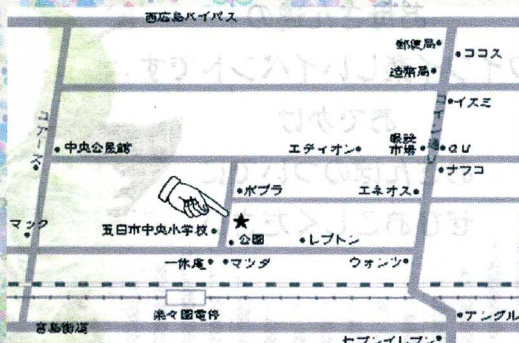 西広島バイパス
郵便局
ココス
造幣局
イズミ
コイン通り
コアーズ
中央公民館
エディオン
眼鏡
市場
au
ナフコ
ポプラ
エネオス
マック
五日市中央小学校
公園
レプトン
一休庵
マツダ
ウォンツ
楽々園電停
アングル
宮島街道
セブンイレブン